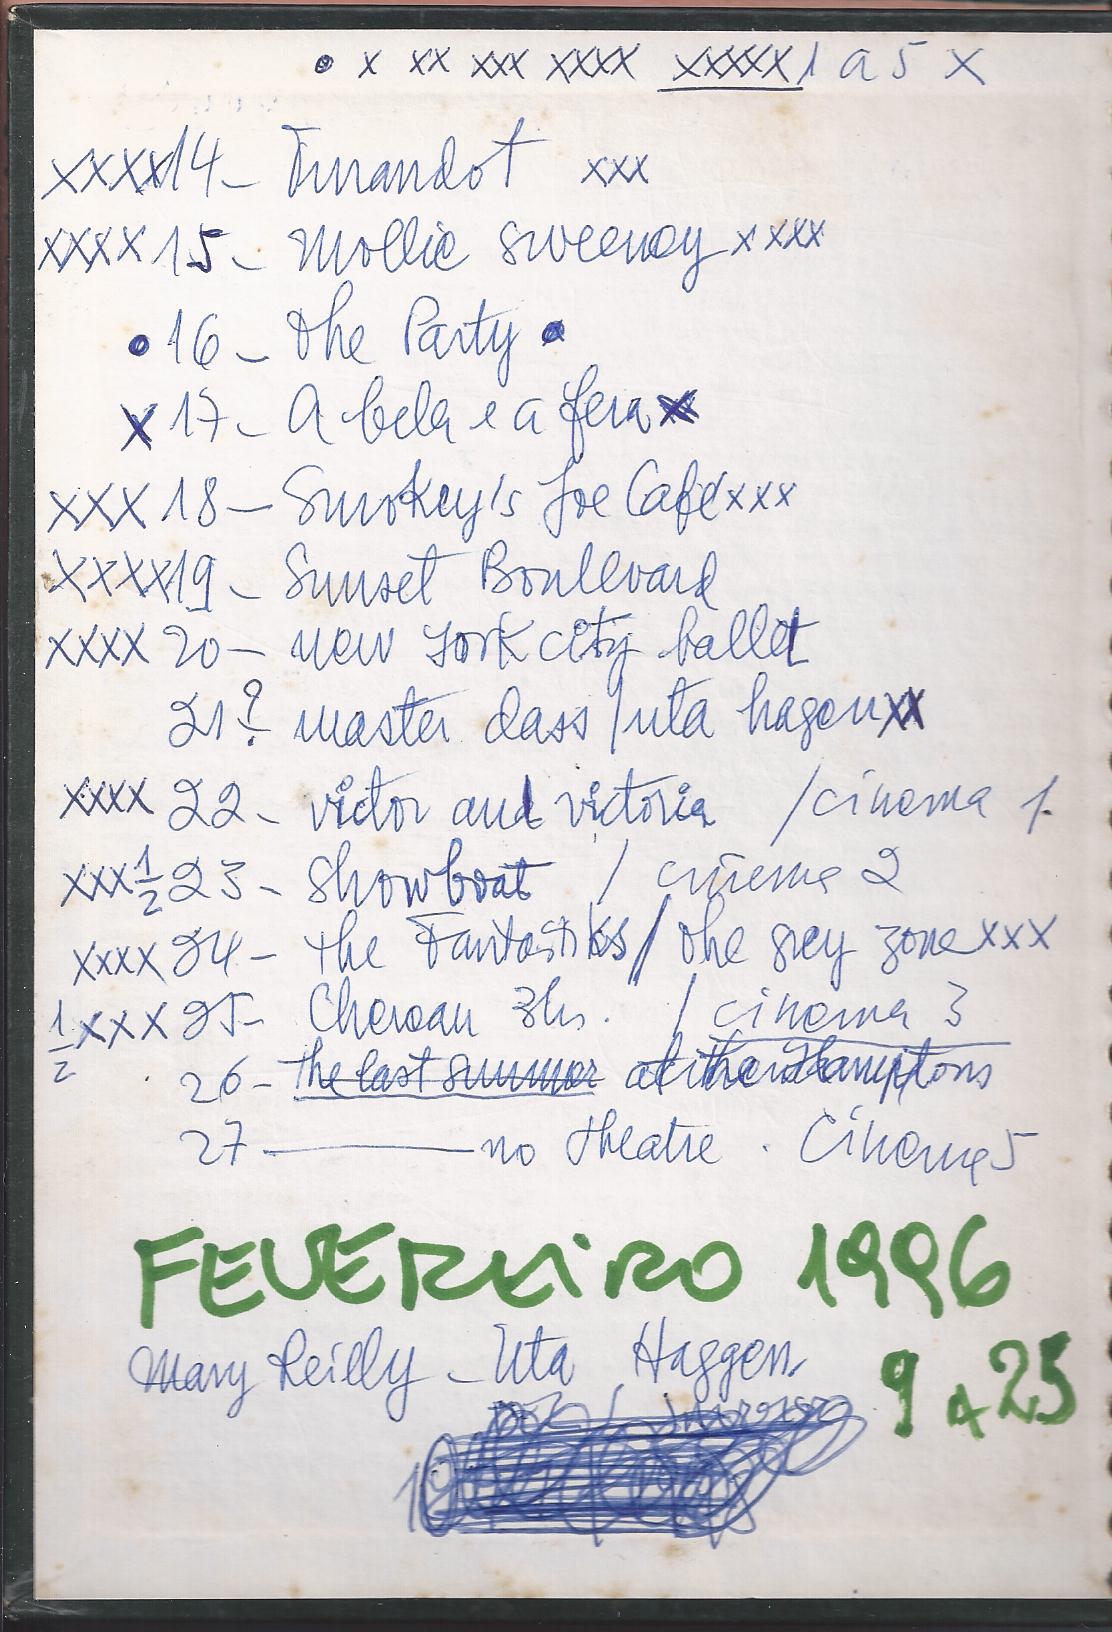 • x xx xxx xxxx xxxxx 1 a 5 x
xxxx 14 - Turandot xxx
xxxx 15 - Mollie Sweeney xxxx
• 16 - the Party •
x 17 - A bela e a fera x
xxx 18 - Smokey's Joe Café xxx
xxxx 19 - Sunset Boulevard
xxxx 20 - new york city ballet
21 ? - master class / uta hagen xx
xxxx 22 - victor and victoria / cinema 1.
xxx 1/2 23 - Showboat / cinema 2
xxxx 24 - the Fantastiks / the grey zone xxx
1/2 xxx 25 - Chereau 3hs. / cinema 3
26 - the last summer at the Hamptons
27 - no theatre . Cinema 5
FEVEREIRO 1996
Mary Reilly - Uta Haggen
9 A 25